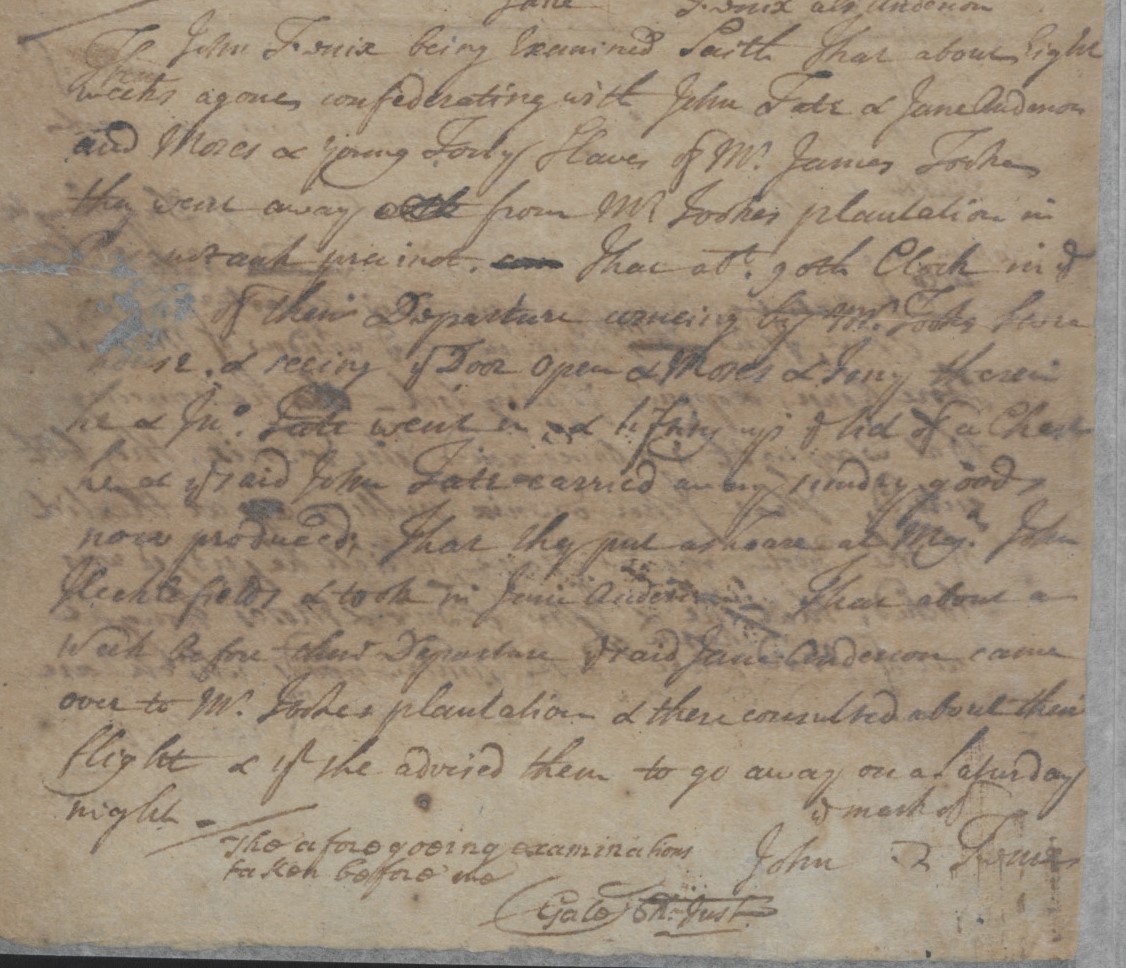 Jane Fenix als. Anderson
John Fenix being Examined Saith That about Eight
weeks agone confederating with John Tate & Jane Anderson
and Moses & young Tony Slaves of Mr. James Tookes
they went away from Mr Tookes plantation in
precinct. That abt. 9 oth Clock in ye
of their Departure comeing by Mr. Tooks Store
house. & seeing ye Door open & Moses & Tony therein
he & Jno. Tate went in & lifting up ye lid of a Chest
he & ye said John Tate carried away sundry goods
now produced; That they put ashoare at John
& took in Jane Anderson That about a
Week before their Departure ye said Jane Anderson came
over to Mr. Tookes plantation & there consulted about their
flight & yt she advised them to go away on a Saturday
night.
ye mark of
John Fenix
The afore goeing examinations
taken before me
Gale Ch: Just